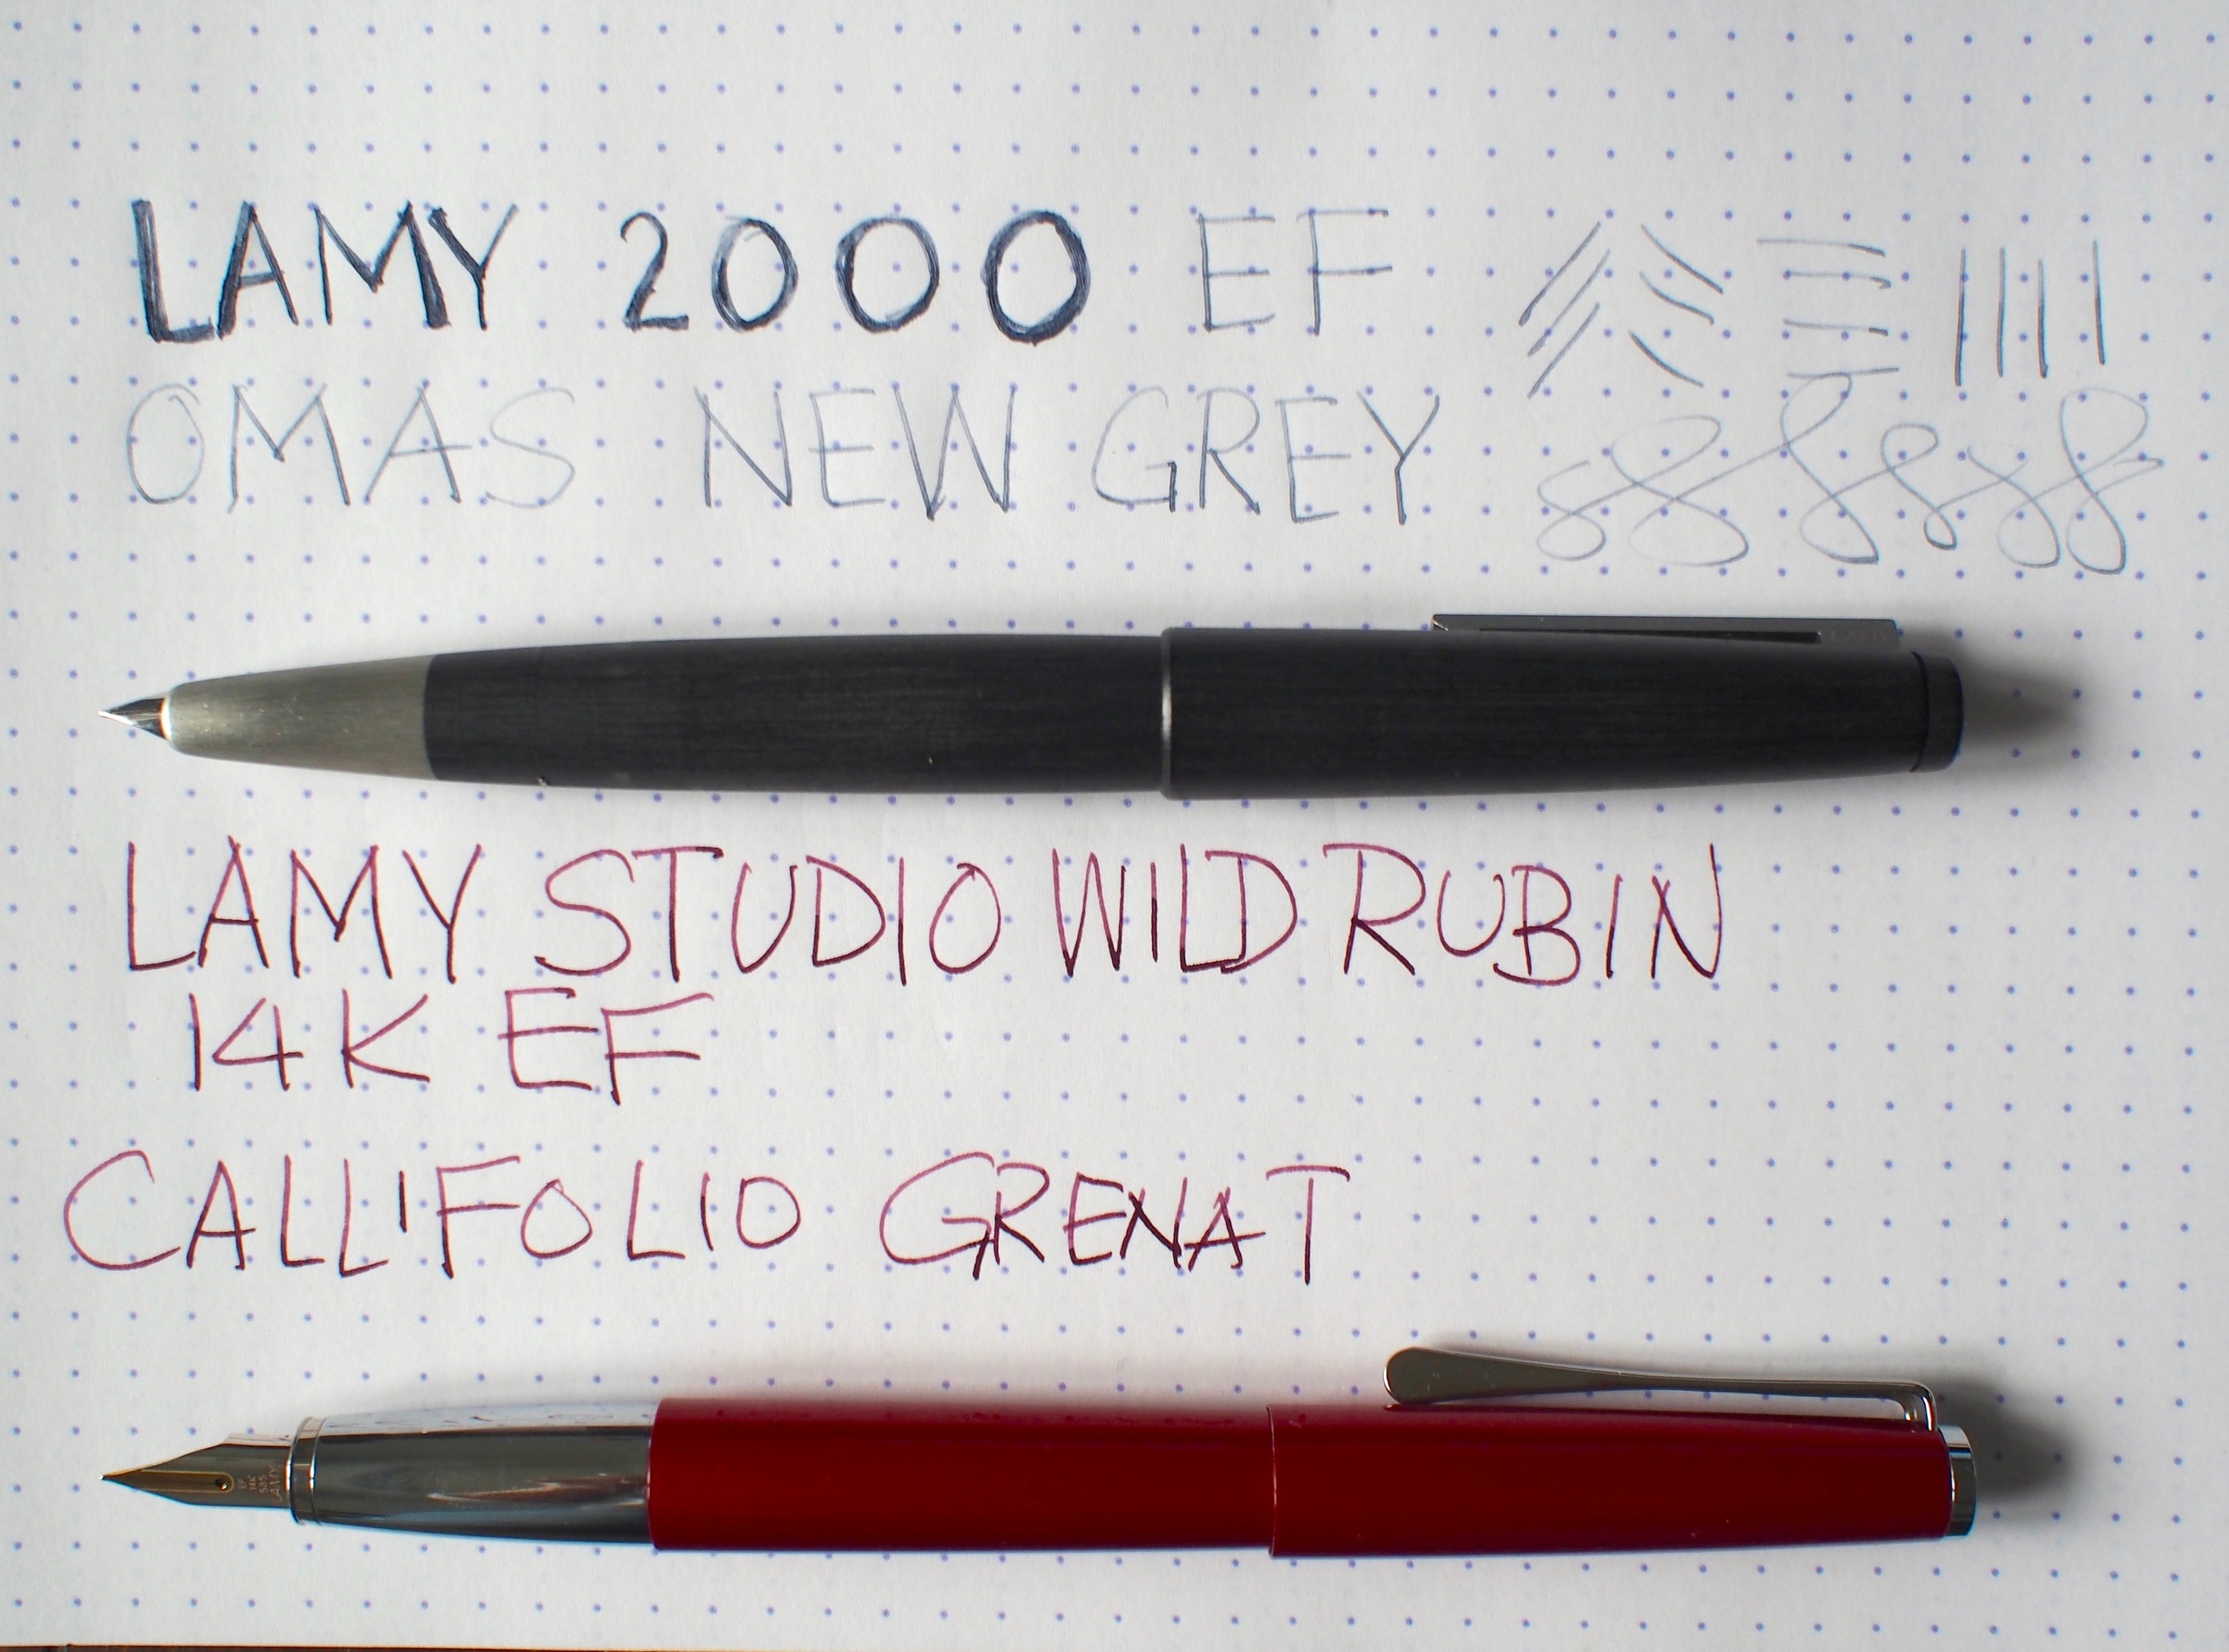 LAMY 2000 EF
OMAS NEW GREY
LAMY STUDIO WILD RUBIN
14K EF
CALLIFOLIO GRENAT
EF
14K
585
LAMY